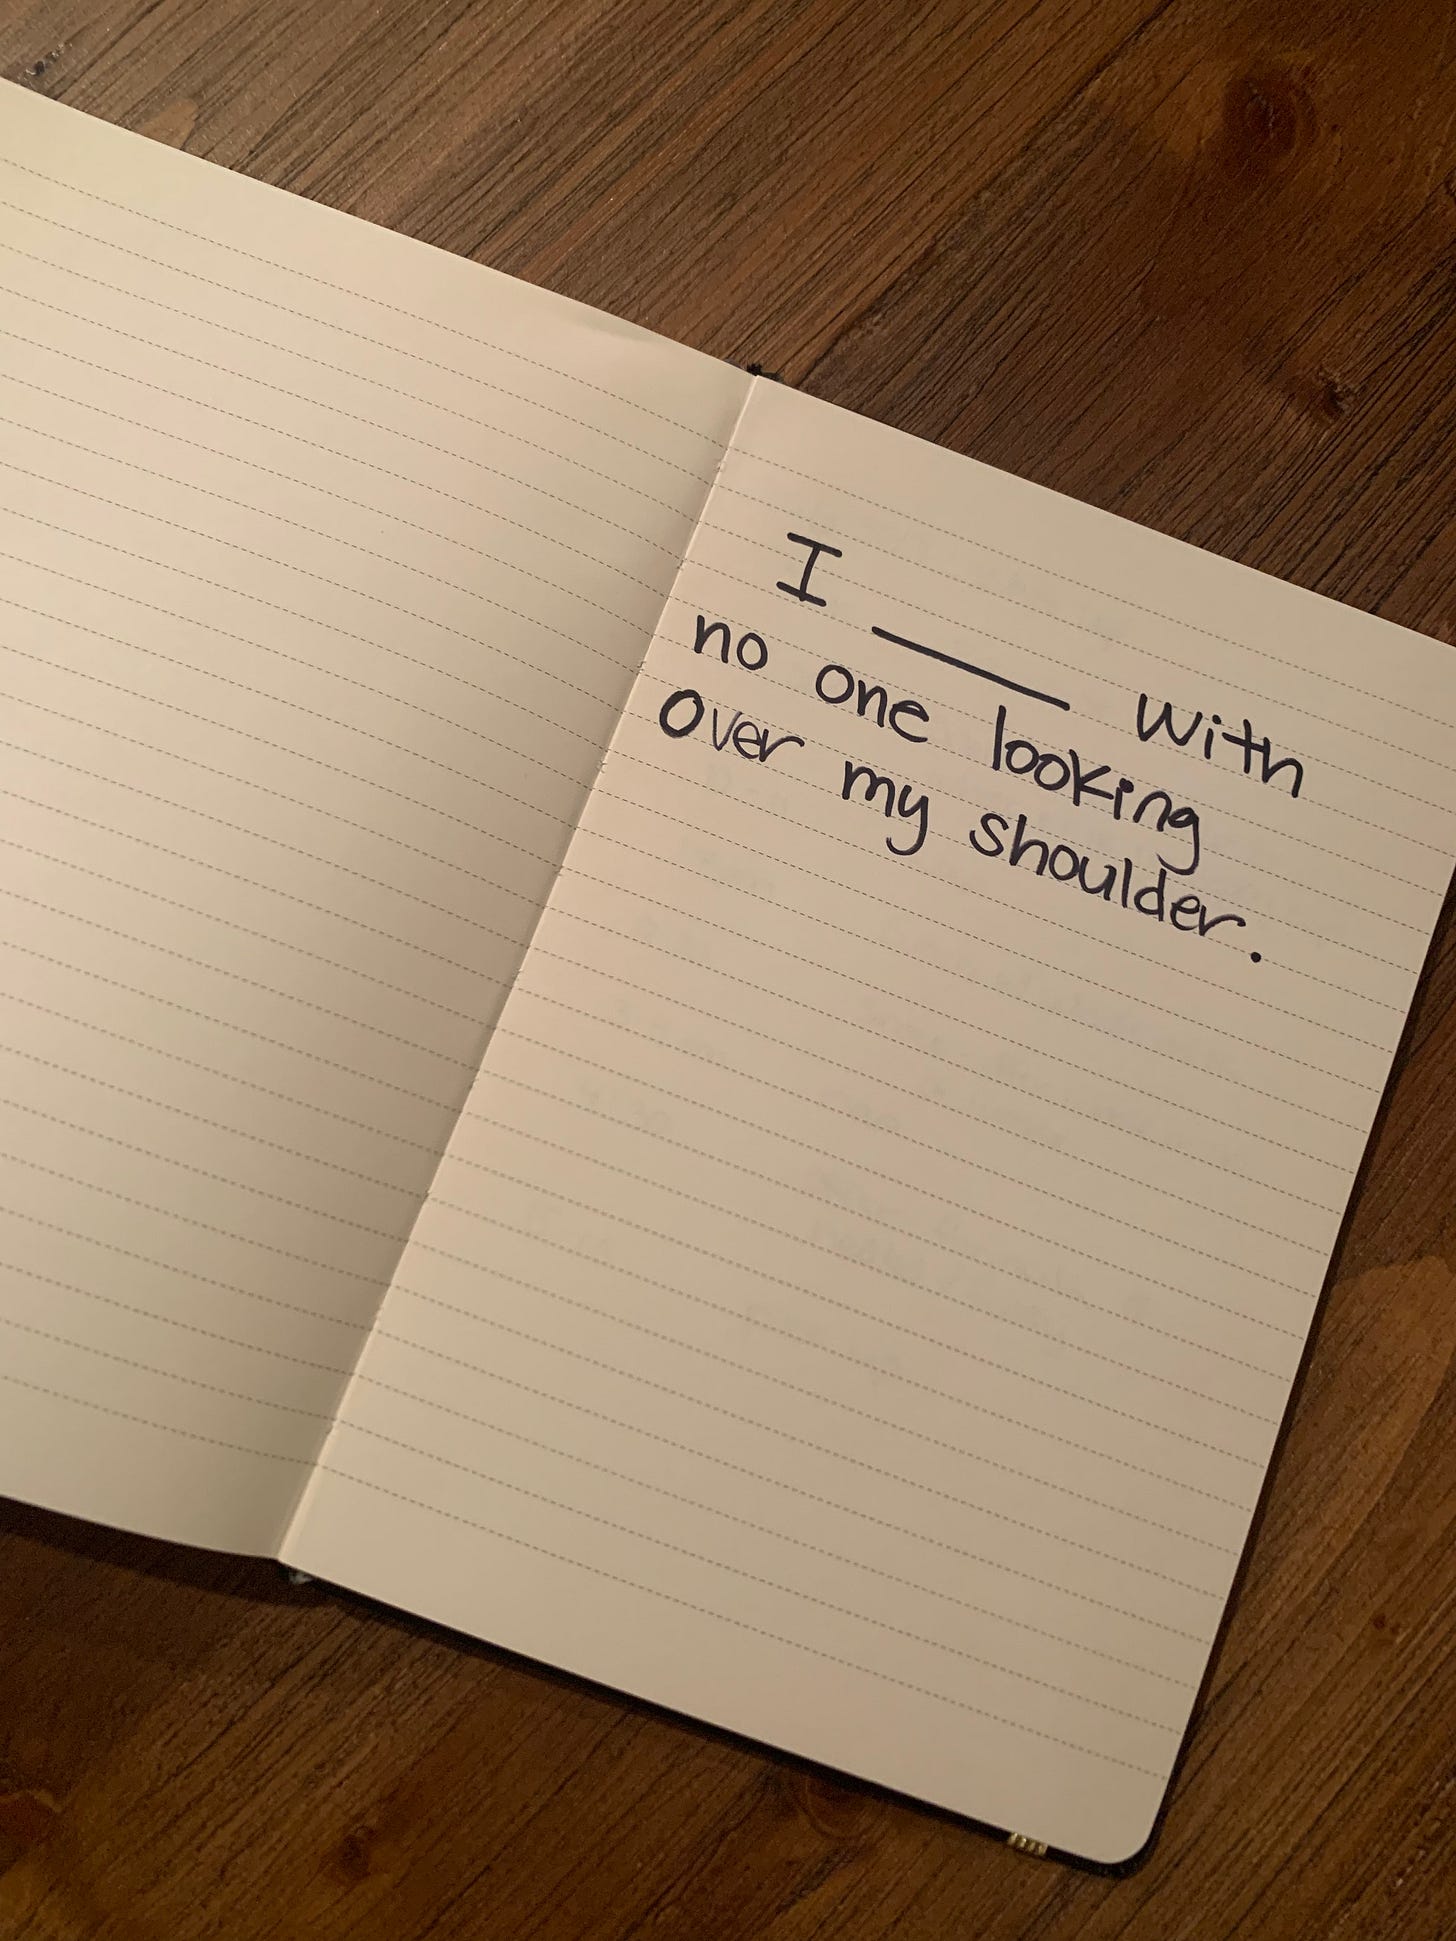 I ______ with
no one looking
over my shoulder.